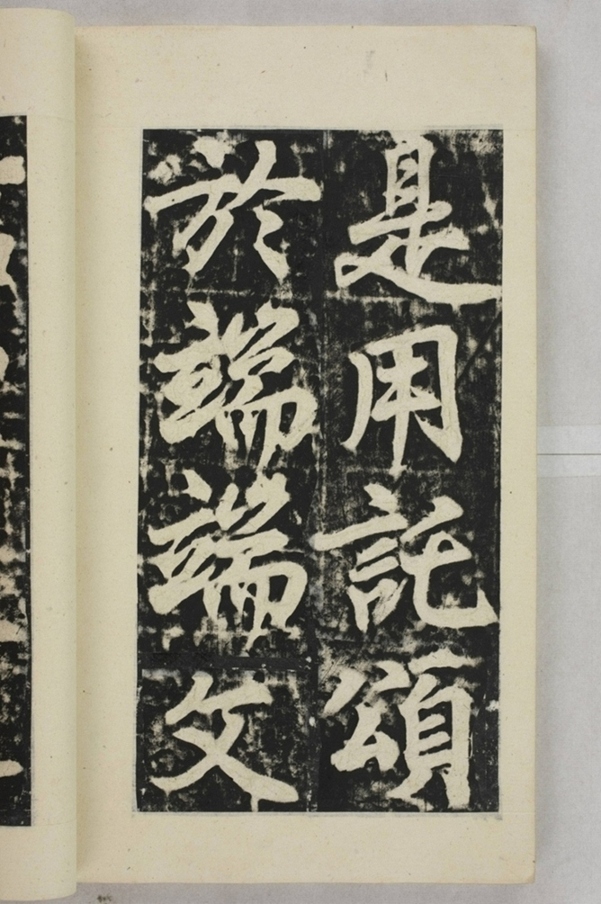 是用託頌
於端端文